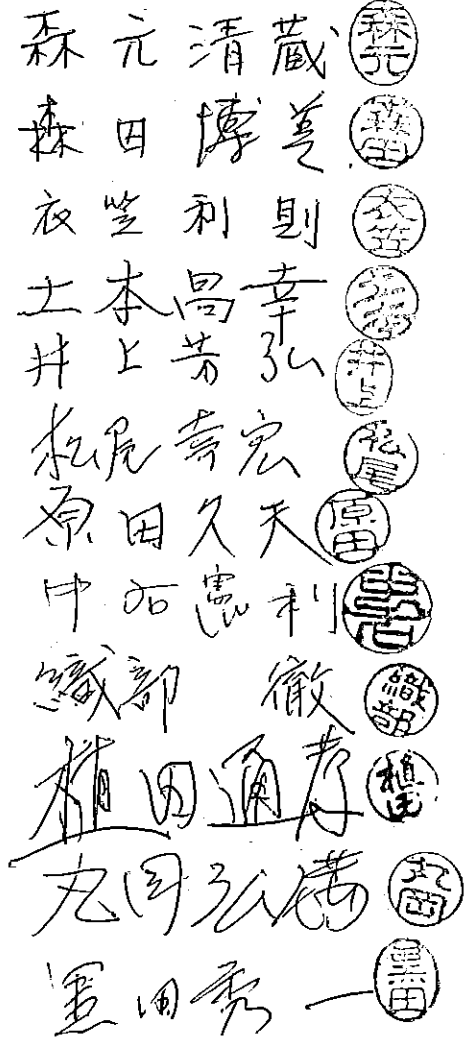 森元清蔵 森元
森田博善 森田
衣笠利則 衣笠
土本昌幸 土本
井上芳弘 井上
松尾幸宏 松尾
原田久夫 原田
中石憲利 中石
織部 徹 織部
植田通孝 植田
丸岡弘満 丸岡
黒田秀一 黒田